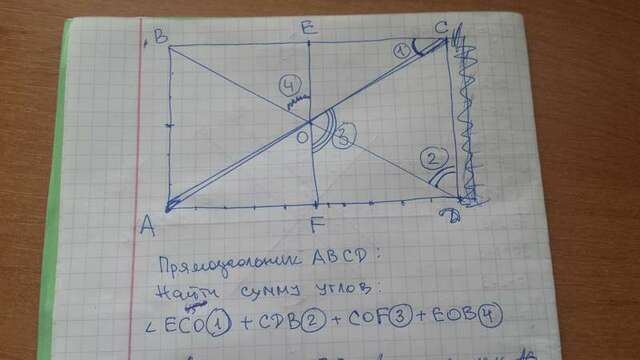 B E C
1
4
O 3
2
A F D
Прямоугольник ABCD:
Найти сумму углов:
∠ ECO 1 + CDB 2 + COF 3 + EOB 4